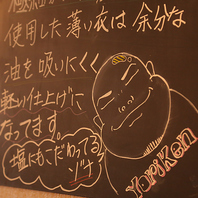 使用した薄い衣は余分な
油を吸いにくく
軽い仕上げに
なってます。
塩にもこだわってる
ゾォ
Yorikon